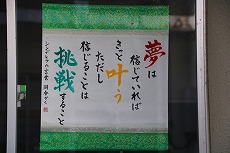 夢は
信じていれば
きっと叶う
ただし
信じることは
挑戦すること
シンデレラの言葉